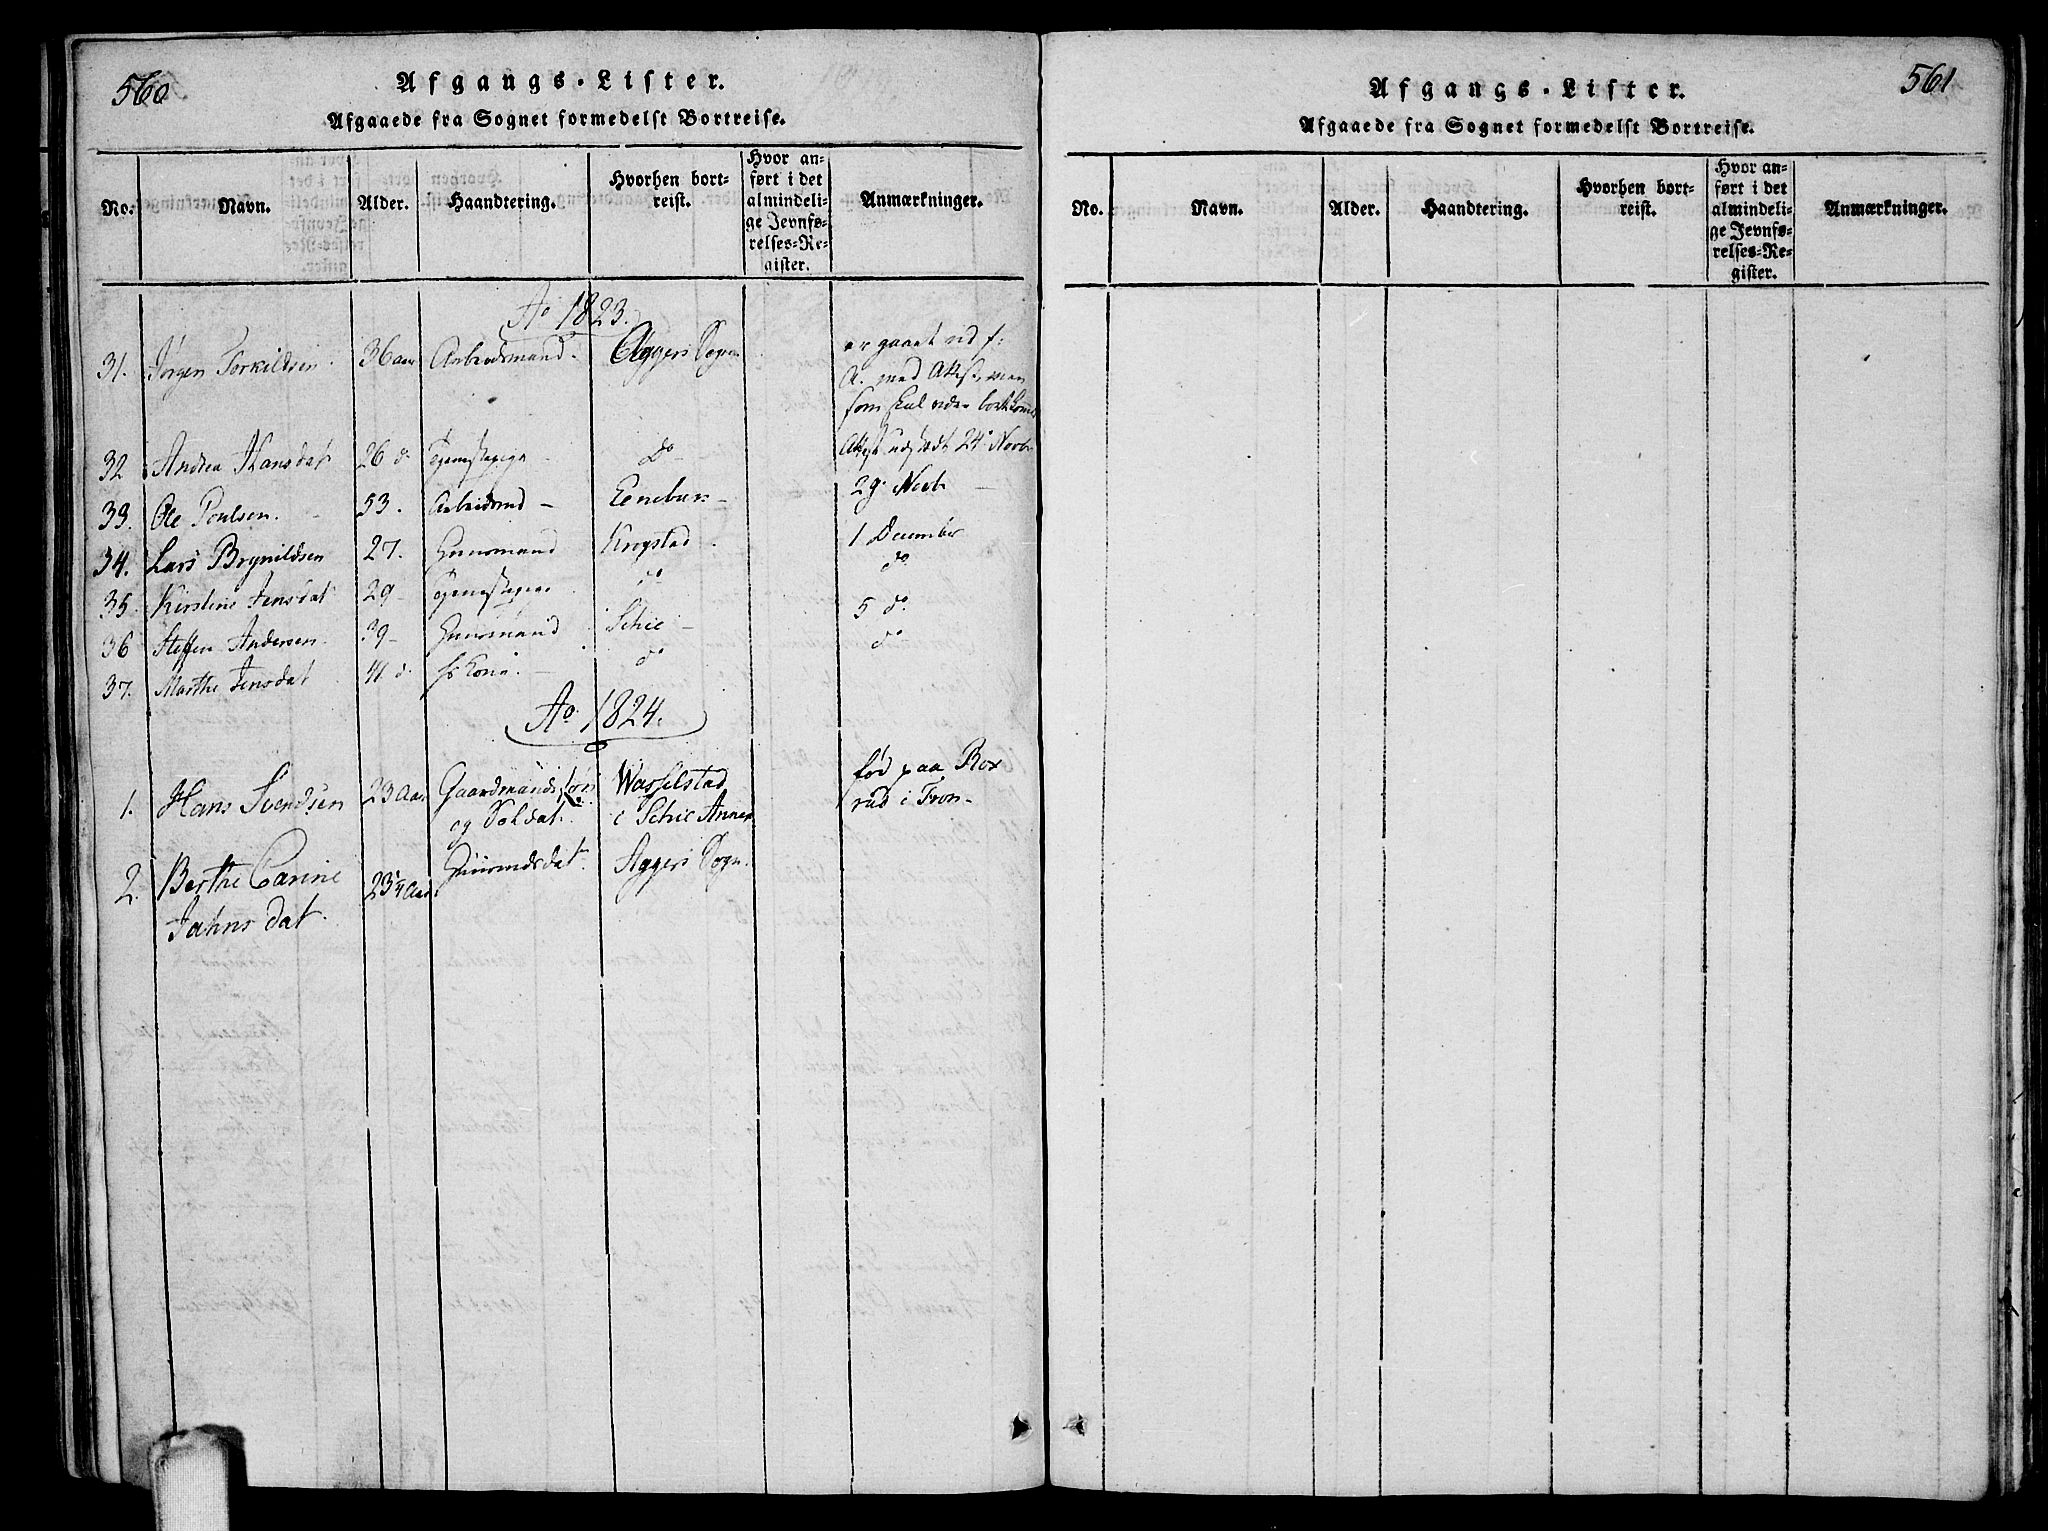 560
Afgangs-Lister.
Afgaaede fra Sognet formedelst Bortreise.
No. Navn. Alder. Haandtering. Hvorhen bortreist. Hvor anført i det almindelige Jevnførelses-Register. Anmærkninger.
Ao 1823.
31. Jørgen Torkildsen. 36 aar Arbeidsmand. Aggers Sogn er gaaet ud f:
A. med Attest, men
som skal være bortkommet
32 Andrea Hansdat 26 do Tjenestepige do Attest udstædt 24de Novbr
33. Ole Poulsen. 53. Arbeidsmd Enebak 29. Novbr
34. Lars Brynildsen 27. Huusmand Krogstad. 1 December
35. Kirstine Jensdat 29 Tjenestepige do do
36 Steffen Andersen 39 Huusmand Schie 5 do
37. Marthe Jensdat 41 do hs Kone do do
Ao 1824.
1. Hans Svendsen 23 Aar Gaardmands søn Wasselstad fød paa Rox
og Soldat. i Schie Annex rud i Tron-
2. Berthe Carine 23 1/4 Aar Huusmdsdat. Aggers Sogn.
Jahnsdat.
561
Afgangs-Lister.
Afgaaede fra Sognet formedelst Bortreise.
No. Navn. Alder. Haandtering. Hvorhen bortreist. Hvor anført i det almindelige Jevnførelses-Register. Anmærkninger.